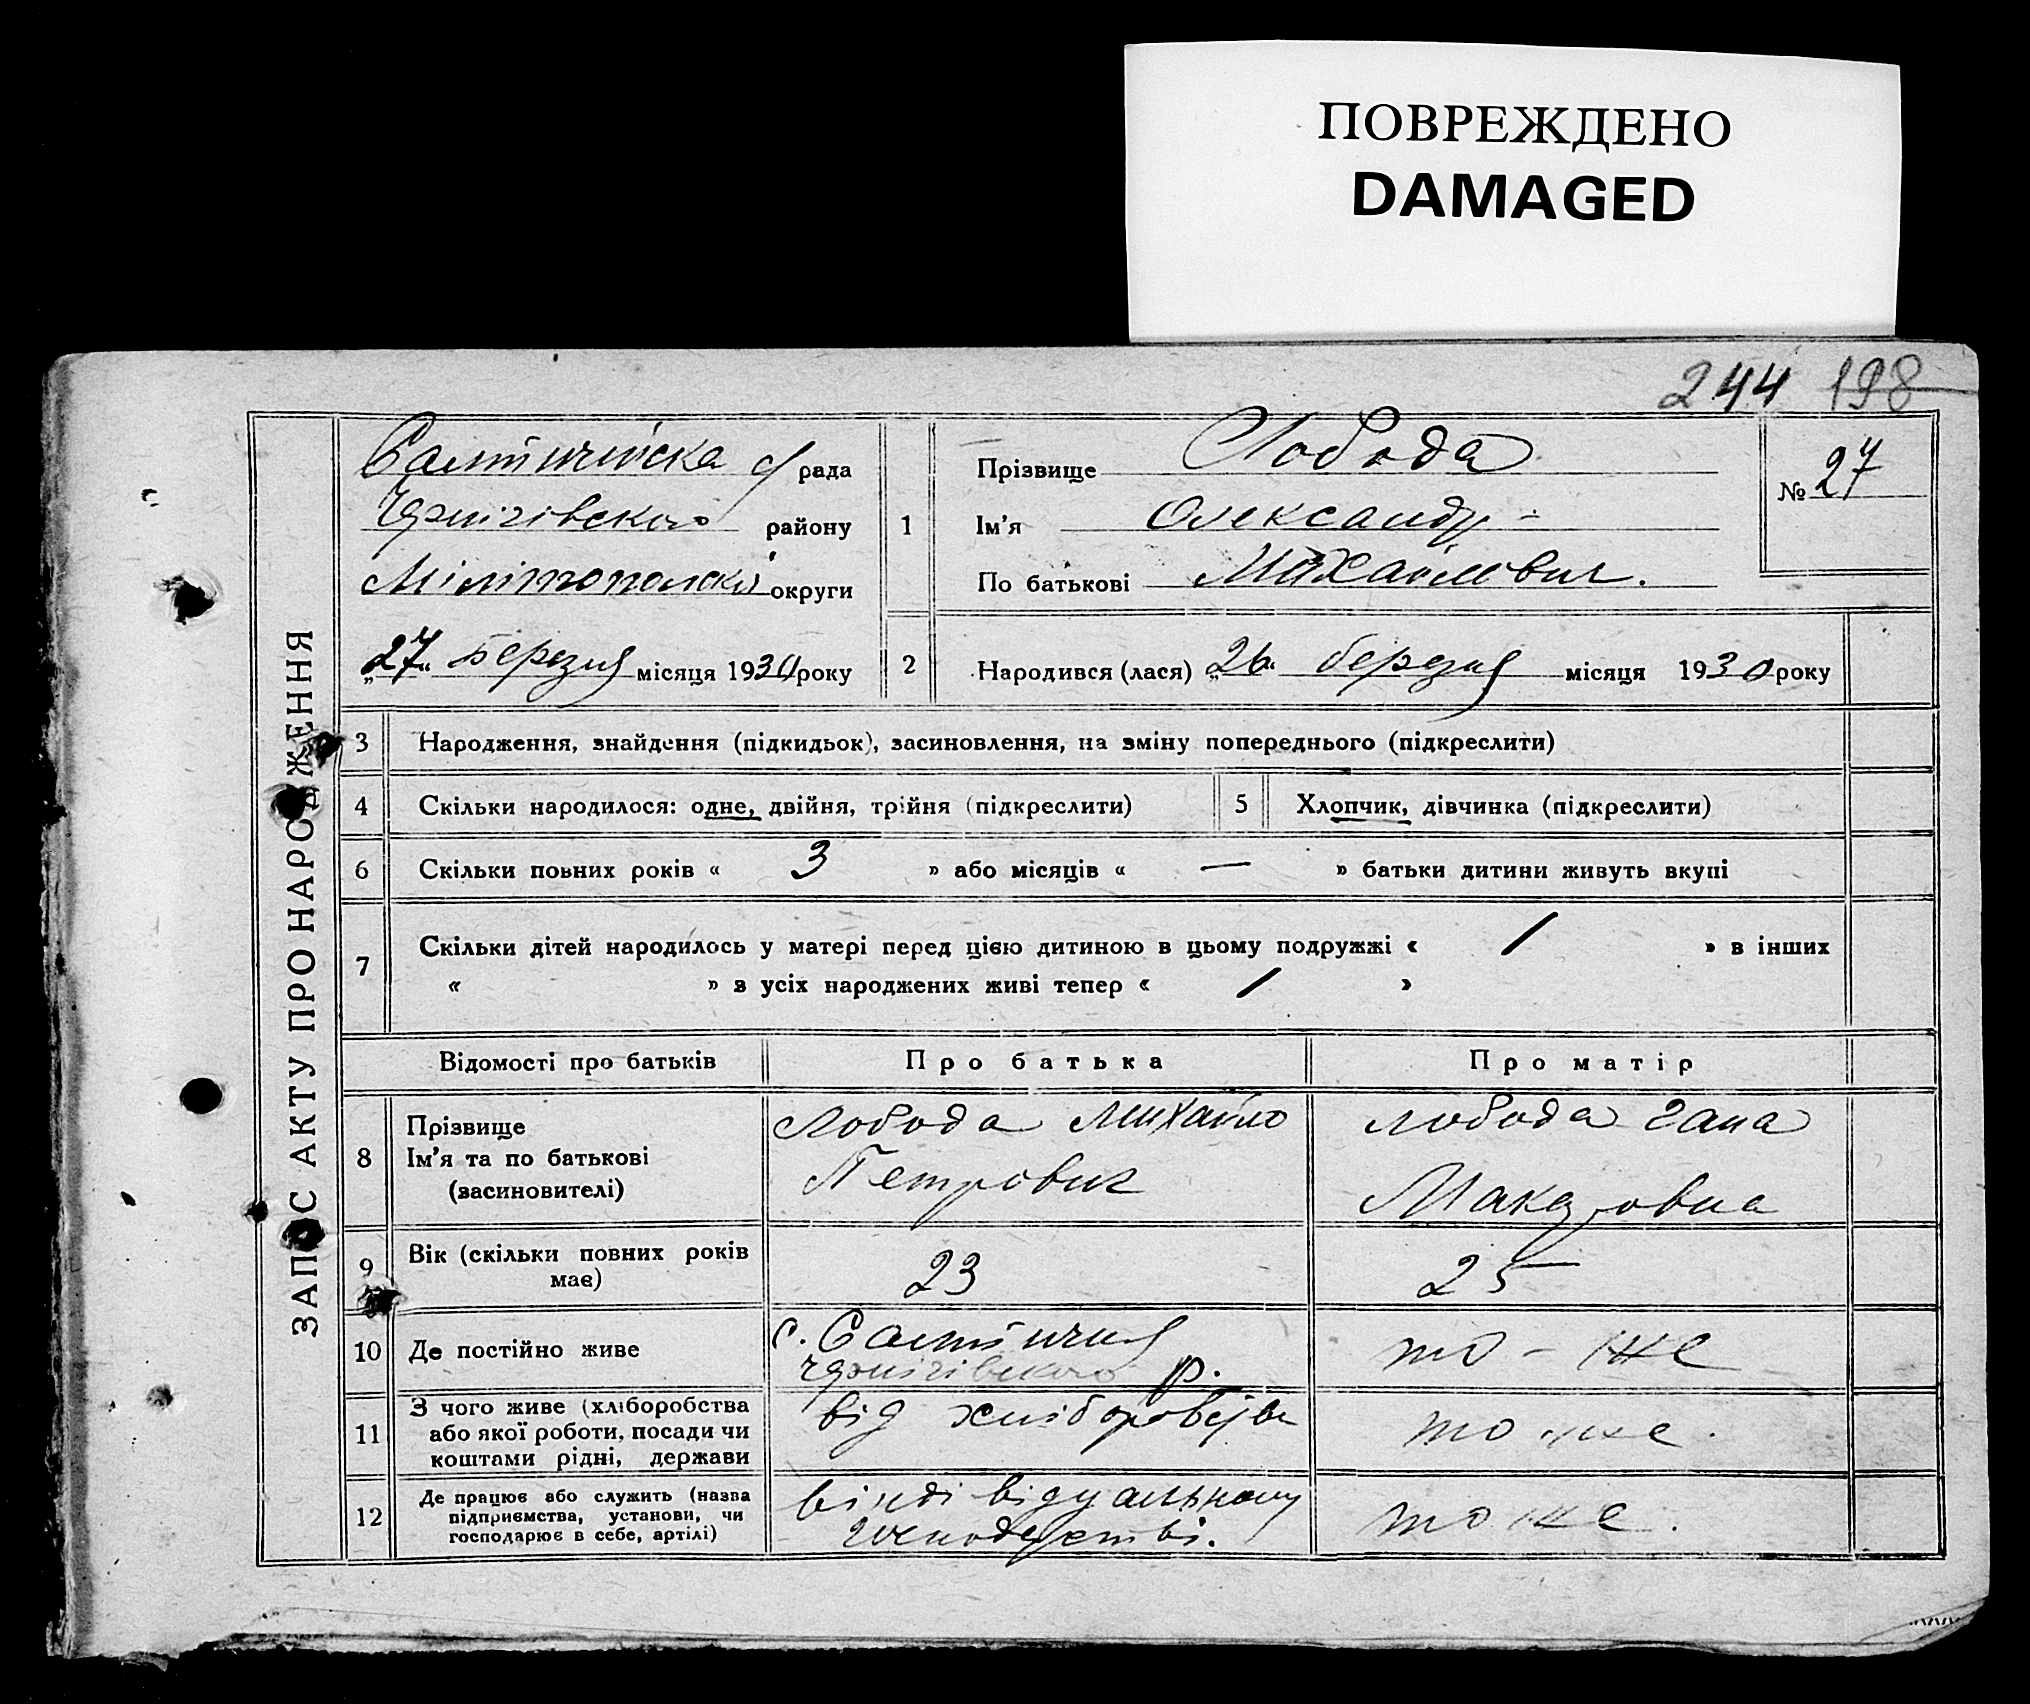 ПОВРЕЖДЕНО
DAMAGED
244 198
ЗАПИС АКТУ ПРО НАРОДЖЕННЯ
Салтичійска с/рада
Чернігівского району
Мілітопольскої округи
„27“ Березня місяця 1930 року
1
Прізвище Лобода
Ім’я Олександр -
По батькові Михайлович.
№ 27
2
Народився (лася) „26“ березня місяця 1930 року
3 Народження, знайдення (підкидьок), засиновлення, на зміну попереднього (підкреслити)
4 Скільки народилося: одне, двійня, трійня (підкреслити) 5 Хлопчик, дівчинка (підкреслити)
6 Скільки повних років « 3 » або місяців « — » батьки дитини живуть вкупі
7 Скільки дітей народилось у матері перед цією дитиною в цьому подружжі « 1 » в інших
« » з усіх народжених живі тепер « 1 »
Відомості про батьків Про батька Про матір
8 Прізвище
Ім’я та по батькові
(засиновителі)
Лобода Михайло
Петрович
Лобода Гана
Макаровна
9 Вік (скільки повних років
має)
23
25
10 Де постійно живе
с. Салтичия
Чернігівского р.
то-же
11 З чого живе (хліборобства
або якої роботи, посади чи
коштами рідні, держави
від
то же.
12 Де працює або служить (назва
підприємства, установи, чи
господарює в себе, артілі)
в індівідуальному
господарстві.
то же.